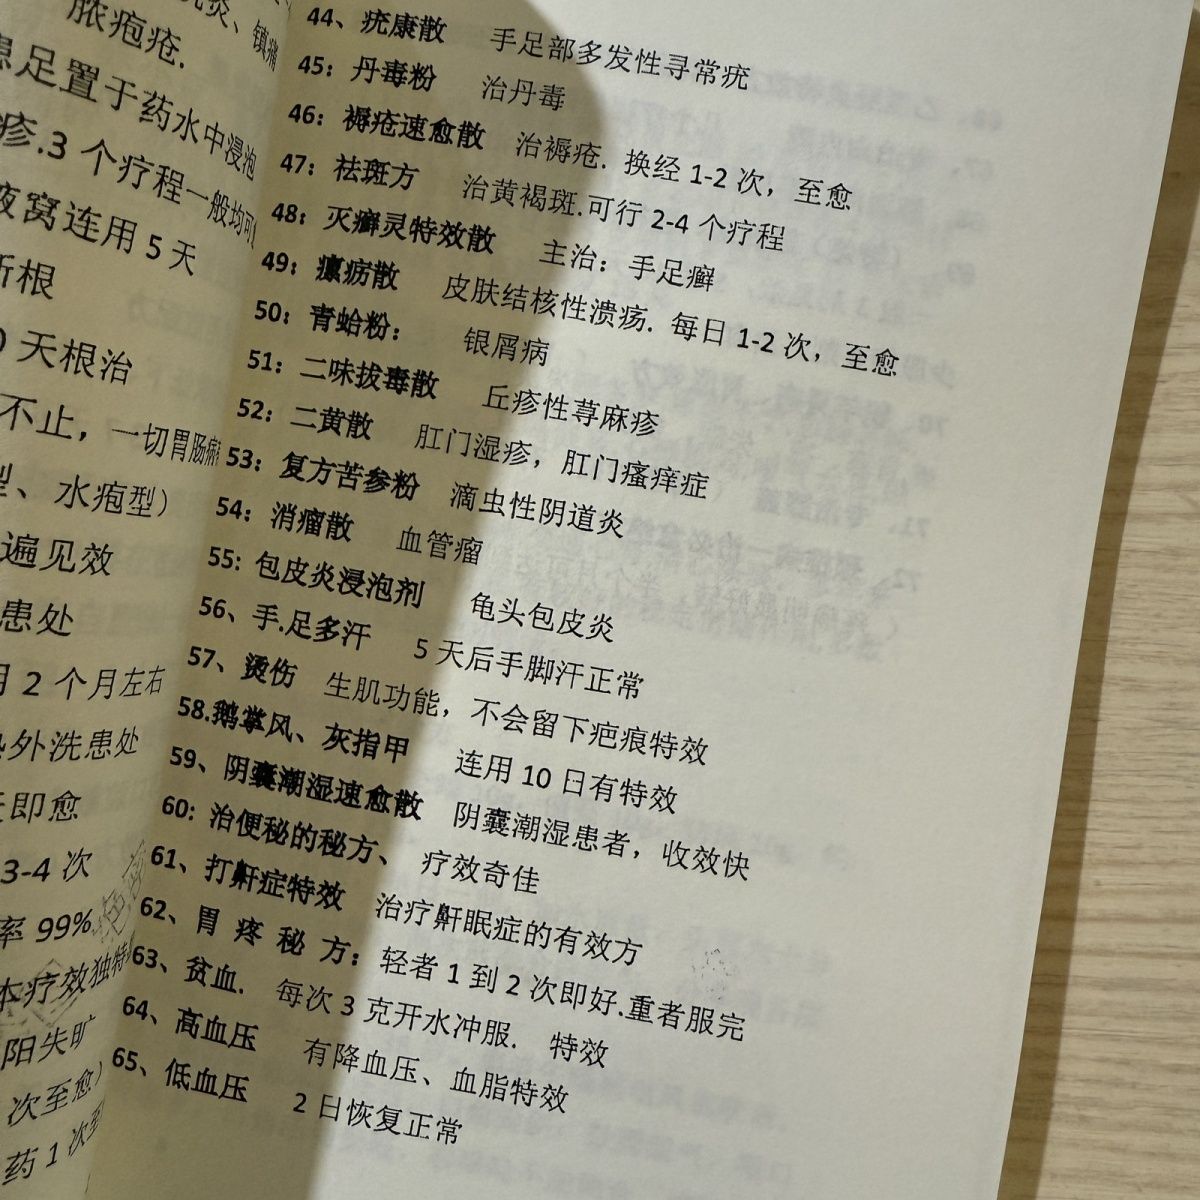 脓疱疮.
患足置于药水中浸泡
疹.3 个疗程一般均可
液窝连用 5 天
天根治
不止，一切胃肠病
型、水疱型）
遍见效
患处
用 2 个月左右
外洗患处
即愈
3-4 次
率 99%
本疗效独特
阳失旷
次至愈）
药 1 次至
44、疣康散 手足部多发性寻常疣
45：丹毒粉 治丹毒
46：褥疮速愈散 治褥疮. 换经 1-2 次，至愈
47：祛斑方 治黄褐斑.可行 2-4 个疗程
48：灭癣灵特效散 主治：手足癣
49：瘰疬散 皮肤结核性溃疡. 每日 1-2 次，至愈
50：青蛤粉： 银屑病
51：二味拔毒散 丘疹性荨麻疹
52：二黄散 肛门湿疹，肛门瘙痒症
53：复方苦参粉 滴虫性阴道炎
54：消瘤散 血管瘤
55: 包皮炎浸泡剂 龟头包皮炎
56、手.足多汗 5 天后手脚汗正常
57、烫伤 生肌功能，不会留下疤痕特效
58.鹅掌风、灰指甲 连用 10 日有特效
59、阴囊潮湿速愈散 阴囊潮湿患者，收效快
60: 治便秘的秘方、 疗效奇佳
61、打鼾症特效 治疗鼾眠症的有效方
62、胃 疼 秘 方： 轻者 1 到 2 次即好.重者服完
63、贫血. 每次 3 克开水冲服. 特效
64、高血压 有降血压、血脂特效
65、低血压 2 日恢复正常